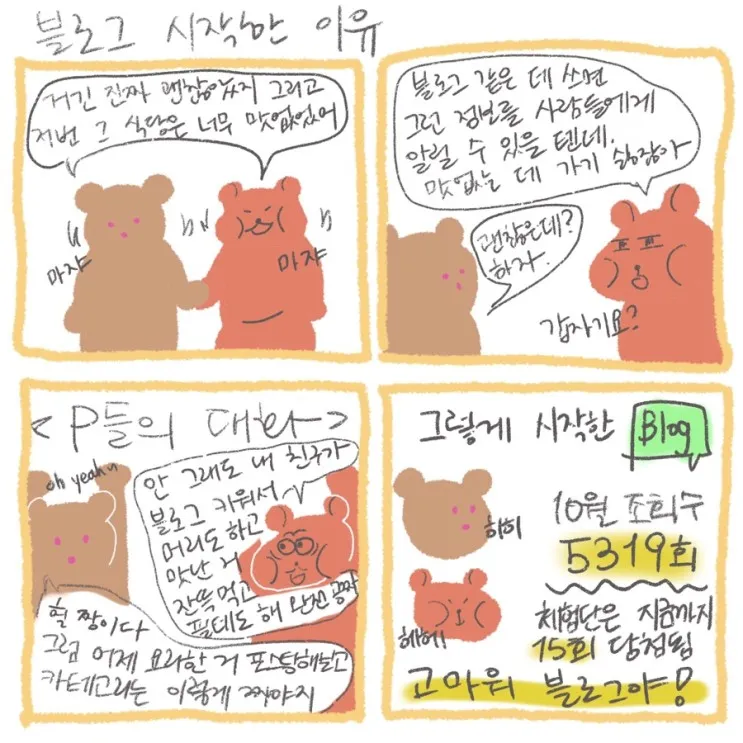 블로그 시작한 이유
거긴 진짜 괜찮았지 그리고
저번 그 식당은 너무 맛없었어
마쟈
마쟈
블로그 같은 데 쓰면
그런 정보를 사람들에게
알릴 수 있을 텐데.
맛없는 데 가기 싫잖아
괜찮은데?
하자.
갑자기요?
<P들의 대화>
oh yeah
안 그래도 내 친구가
블로그 키워서
머리도 하고
맛난 거
잔뜩 먹고
필테도 해 완전 공짜
헐 짱이다
그럼 어제 요리한 거 포스팅해놓고
카테고리는 이렇게 짜야지
그렇게 시작한 Blog
히히
헤헤!
10월 조회수
5319회
체험단은 지금까지
15회 당첨됨
고마워 블로그야!